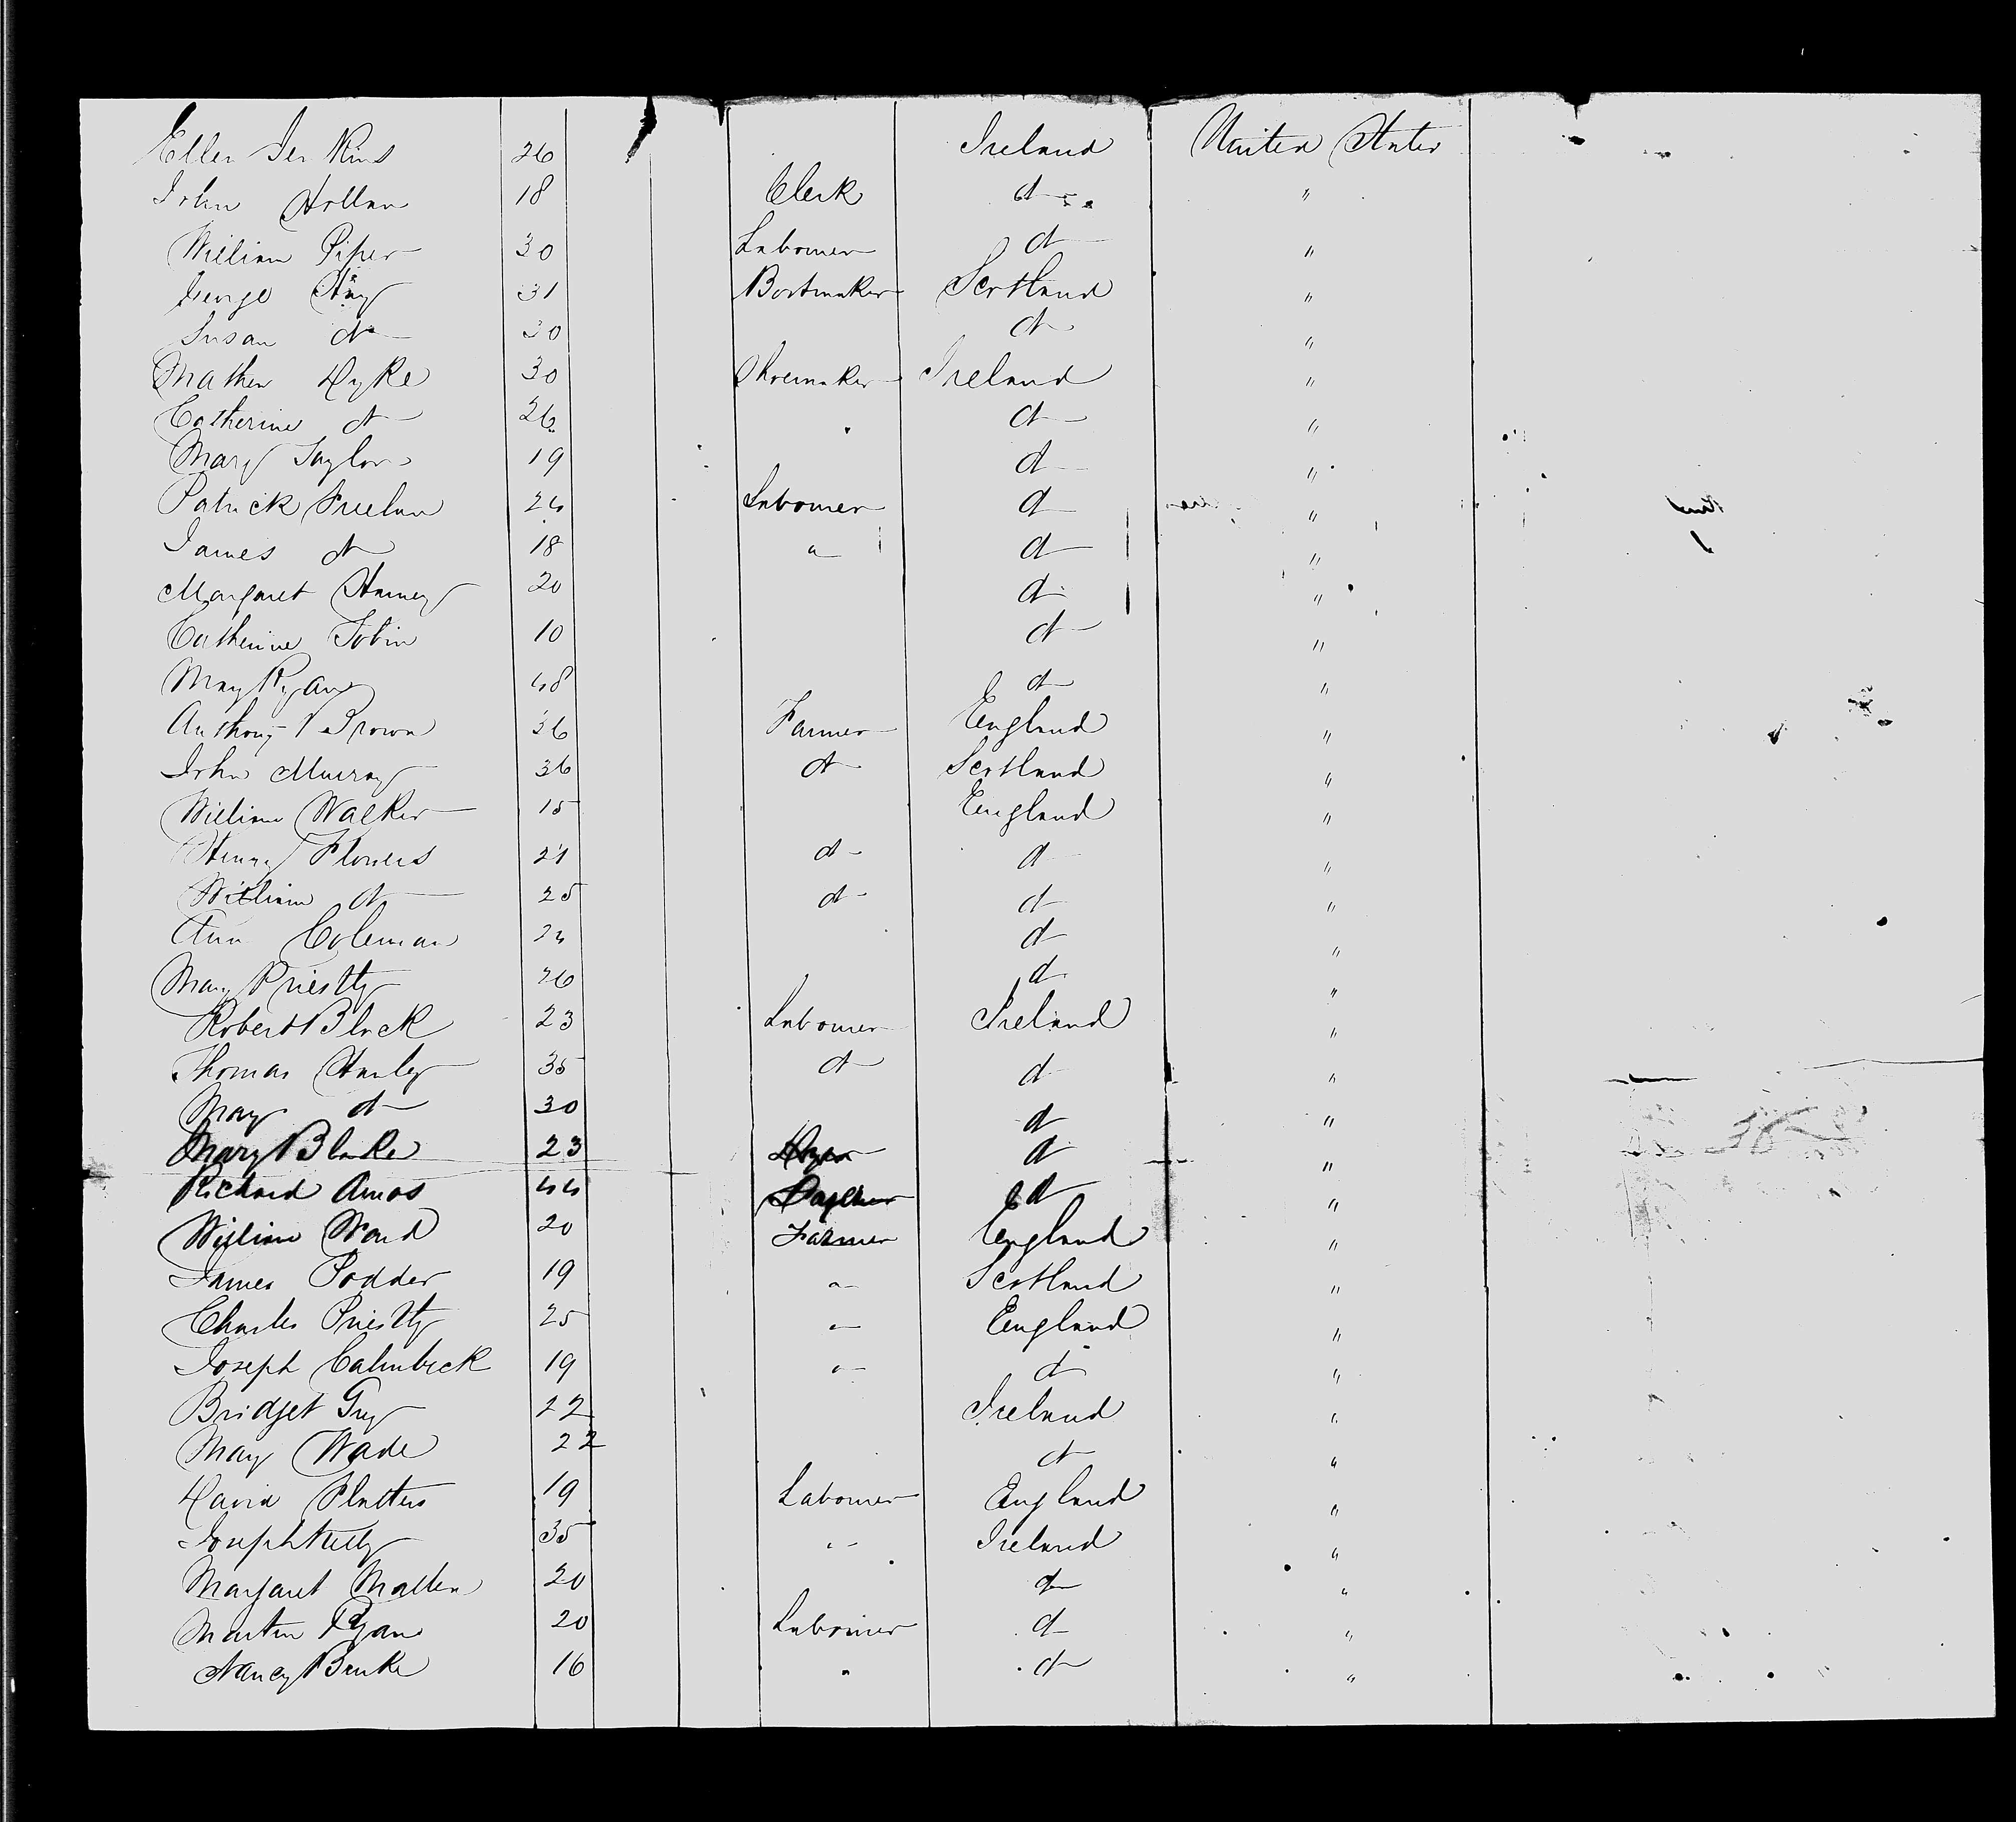 Ellen Jenkins 26 Ireland United States
John Hollan 18 Clerk do "
William Piper 30 Labourer do "
George Hay 31 Bootmaker Scotland "
Susan do 30 do "
Mathew Dyke 30 Shoemaker Ireland "
Catherine do 26 do "
Mary Taylor 19 do "
Patrick Freelan 24 Labourer do "
James do 18 " do "
Margaret Harney 20 do "
Catherine Tobin 10 do "
Mary Ryan 48 do "
Anthony Brown 36 Farmer England "
John Murray 36 do Scotland "
William Walker 15 England "
Henry Flowers 21 do do "
William do 25 do do "
Ann Coleman 24 do "
Mary Priestly 26 do "
Robert Block 23 Labourer Ireland "
Thomas Hanley 35 do do "
Mary do 30 do "
Mary Blake 23 do "
Richard Amos 44 do "
William Ward 20 Farmer England "
James Podder 19 " Scotland "
Charles Priestly 25 " England "
Joseph Calinbeck 19 " do "
Bridget Guy 22 Ireland "
Mary Wade 22 do "
David Platters 19 Labourer England "
Joseph Kelly 35 " Ireland "
Margaret Mallen 20 do "
Martin Ryan 20 Labourer do "
Nancy Burke 16 " do "